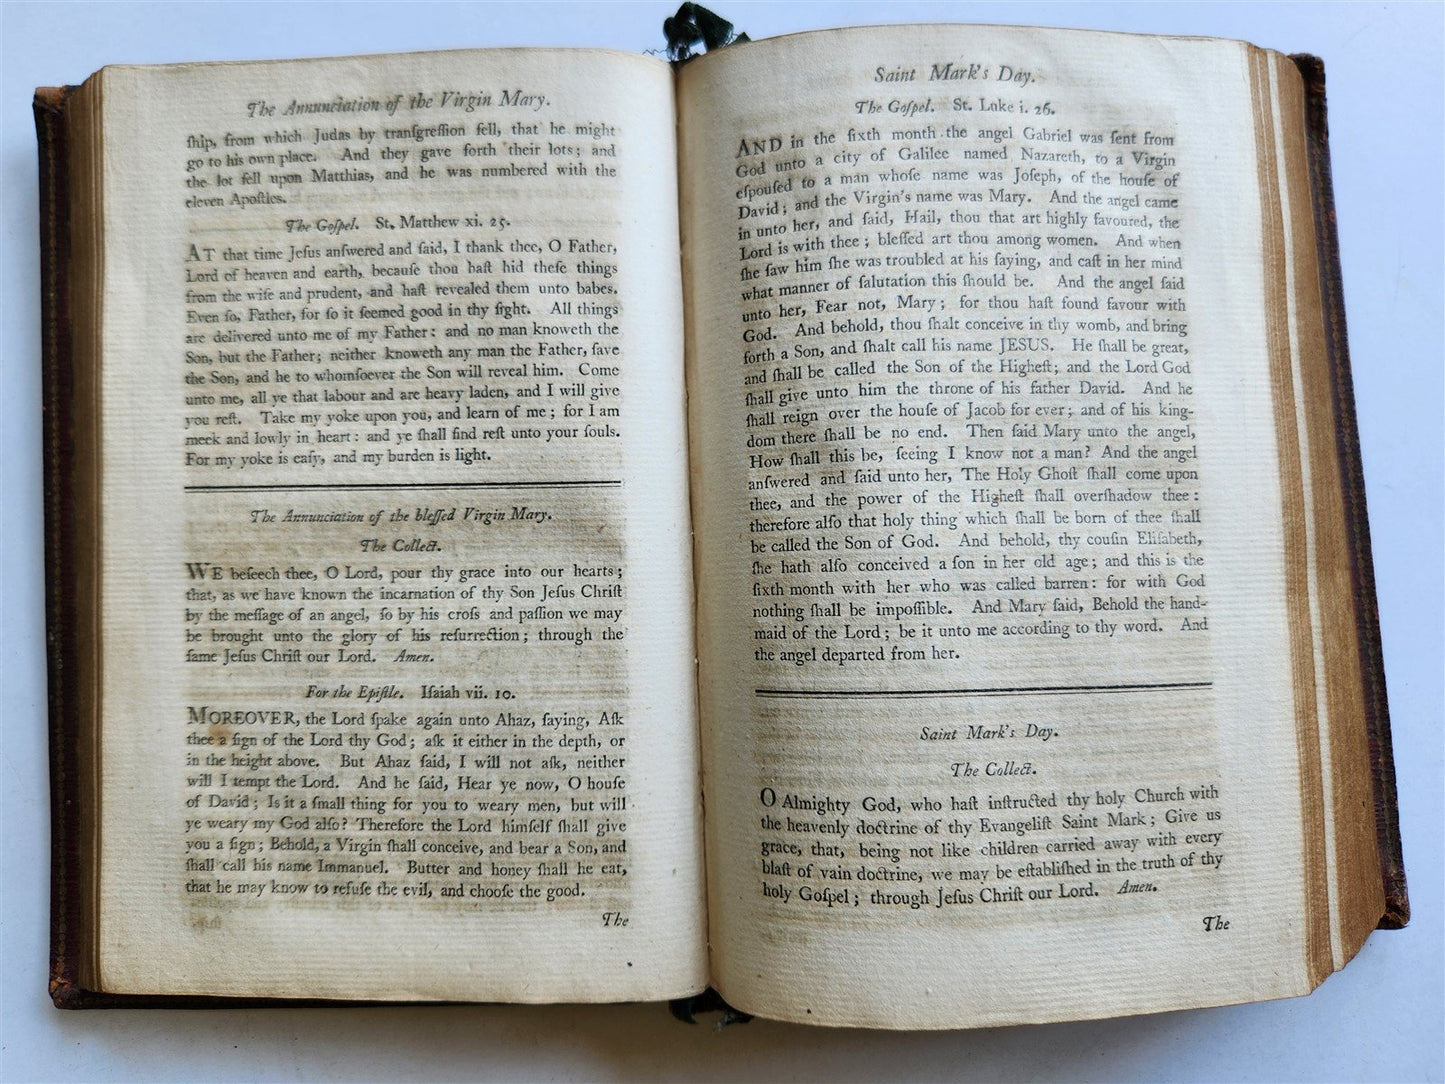 The Annunciation of the Virgin Mary.
ſhip, from which Judas by tranſgreſſion fell, that he might
go to his own place. And they gave forth their lots; and
the lot fell upon Matthias, and he was numbered with the
eleven Apoſtles.
The Goſpel. St. Matthew xi. 25.
AT that time Jeſus anſwered and ſaid, I thank thee, O Father,
Lord of heaven and earth, becauſe thou haſt hid theſe things
from the wiſe and prudent, and haſt revealed them unto babes.
Even ſo, Father, for ſo it ſeemed good in thy ſight. All things
are delivered unto me of my Father: and no man knoweth the
Son, but the Father; neither knoweth any man the Father, ſave
the Son, and he to whomſoever the Son will reveal him. Come
unto me, all ye that labour and are heavy laden, and I will give
you reſt. Take my yoke upon you, and learn of me; for I am
meek and lowly in heart: and ye ſhall find reſt unto your ſouls.
For my yoke is eaſy, and my burden is light.
The Annunciation of the bleſſed Virgin Mary.
The Collect.
WE beſeech thee, O Lord, pour thy grace into our hearts;
that, as we have known the incarnation of thy Son Jeſus Chriſt
by the meſſage of an angel, ſo by his croſs and paſſion we may
be brought unto the glory of his reſurrection; through the
ſame Jeſus Chriſt our Lord. Amen.
For the Epiſtle. Iſaiah vii. 10.
MOREOVER, the Lord ſpake again unto Ahaz, ſaying, Aſk
thee a ſign of the Lord thy God; aſk it either in the depth, or
in the height above. But Ahaz ſaid, I will not aſk, neither
will I tempt the Lord. And he ſaid, Hear ye now, O houſe
of David; Is it a ſmall thing for you to weary men, but will
ye weary my God alſo? Therefore the Lord himſelf ſhall give
you a ſign; Behold, a Virgin ſhall conceive, and bear a Son, and
ſhall call his name Immanuel. Butter and honey ſhall he eat,
that he may know to refuſe the evil, and chooſe the good.
The
Saint Mark's Day.
The Goſpel. St. Luke i. 26.
AND in the ſixth month the angel Gabriel was ſent from
God unto a city of Galilee named Nazareth, to a Virgin
eſpouſed to a man whoſe name was Joſeph, of the houſe of
David; and the Virgin's name was Mary. And the angel came
in unto her, and ſaid, Hail, thou that art highly favoured, the
Lord is with thee; bleſſed art thou among women. And when
ſhe ſaw him ſhe was troubled at his ſaying, and caſt in her mind
what manner of ſalutation this ſhould be. And the angel ſaid
unto her, Fear not, Mary; for thou haſt found favour with
God. And behold, thou ſhalt conceive in thy womb, and bring
forth a Son, and ſhalt call his name JESUS. He ſhall be great,
and ſhall be called the Son of the Higheſt; and the Lord God
ſhall give unto him the throne of his father David. And he
ſhall reign over the houſe of Jacob for ever; and of his king-
dom there ſhall be no end. Then ſaid Mary unto the angel,
How ſhall this be, ſeeing I know not a man? And the angel
anſwered and ſaid unto her, The Holy Ghoſt ſhall come upon
thee, and the power of the Higheſt ſhall overſhadow thee:
therefore alſo that holy thing which ſhall be born of thee ſhall
be called the Son of God. And behold, thy couſin Eliſabeth,
ſhe hath alſo conceived a ſon in her old age; and this is the
ſixth month with her who was called barren: for with God
nothing ſhall be impoſſible. And Mary ſaid, Behold the hand-
maid of the Lord; be it unto me according to thy word. And
the angel departed from her.
Saint Mark's Day.
The Collect.
O Almighty God, who haſt inſtructed thy holy Church with
the heavenly doctrine of thy Evangeliſt Saint Mark; Give us
grace, that, being not like children carried away with every
blaſt of vain doctrine, we may be eſtabliſhed in the truth of thy
holy Goſpel; through Jeſus Chriſt our Lord. Amen.
The